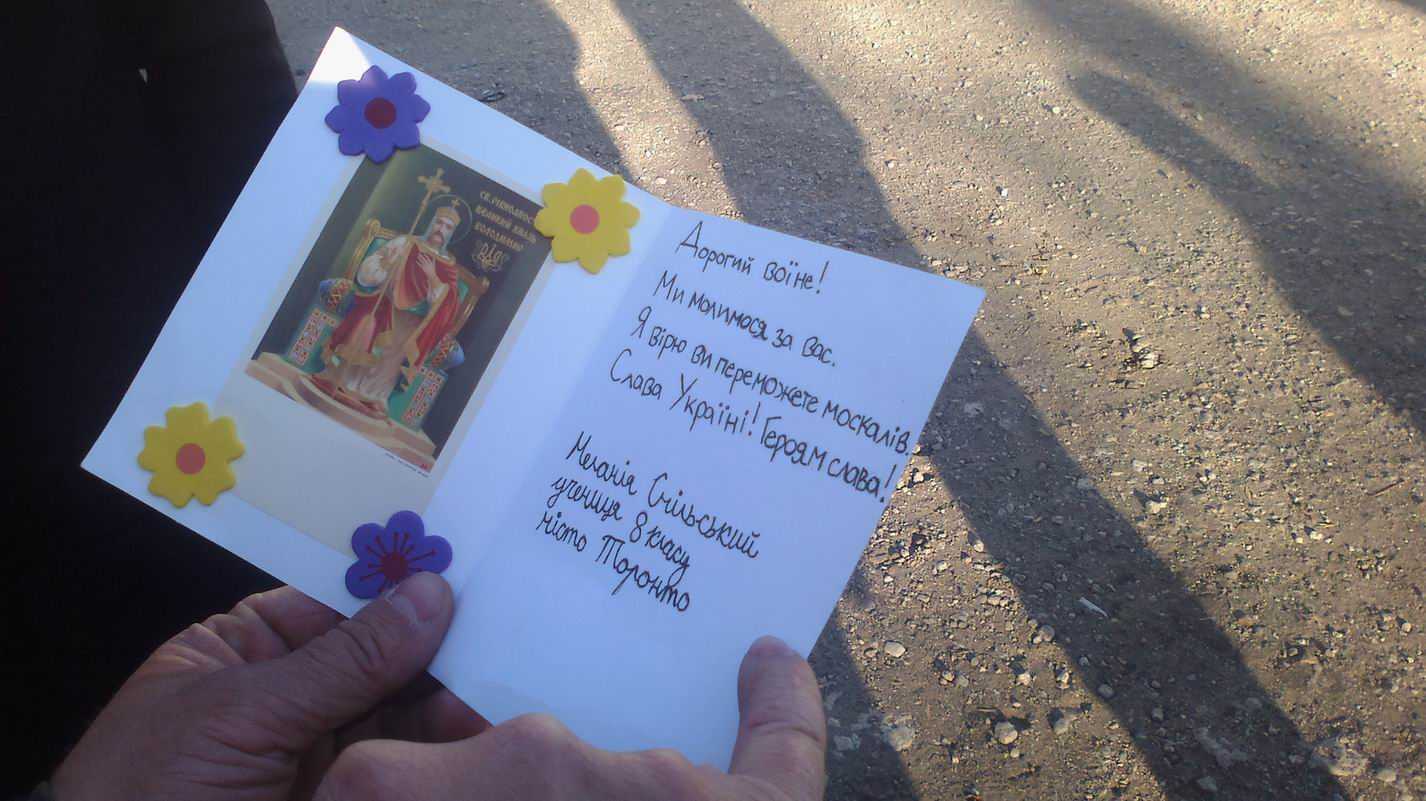 СВ. РІВНОАПОС
ВЕЛИКИЙ КНЯЗЬ
ВОЛОДИМИР
Дорогий воїне!
Ми молимося за вас.
Я вірю ви переможете москалів.
Слава Україні! Героям слава!
Меланія Смільський
учениця 8 класу
місто Торонто